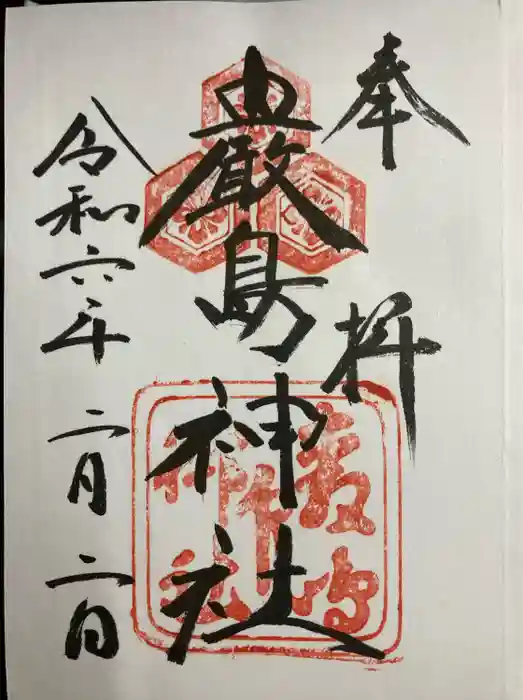 奉拝
嚴島神社
令和六年二月二日
嚴島
神社